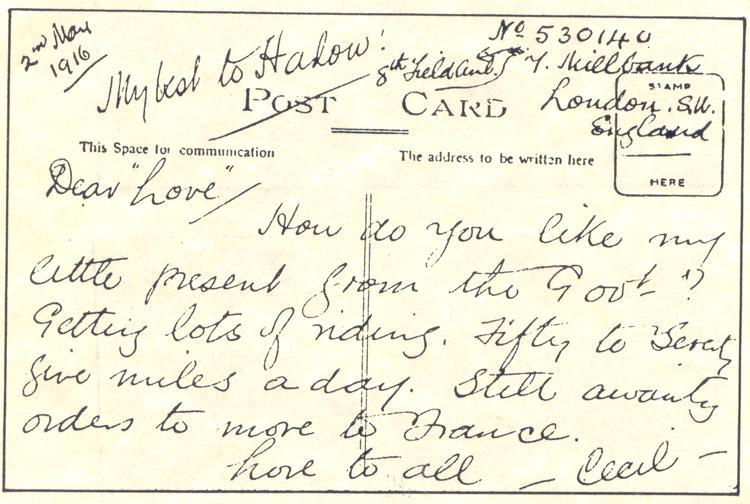 2nd May
1916
My best to Harow!
No 530140
8th Field Amb. 7. Millbank
London. S.W.
England
POST CARD
STAMP
HERE
This Space for communication
The address to be written here
Dear "Love"/
How do you like my
little present from the Govt "?
Getting lots of riding. Fifty to Seventy
five miles a day. Still awaiting
orders to move to France.
Love to all – Cecil –